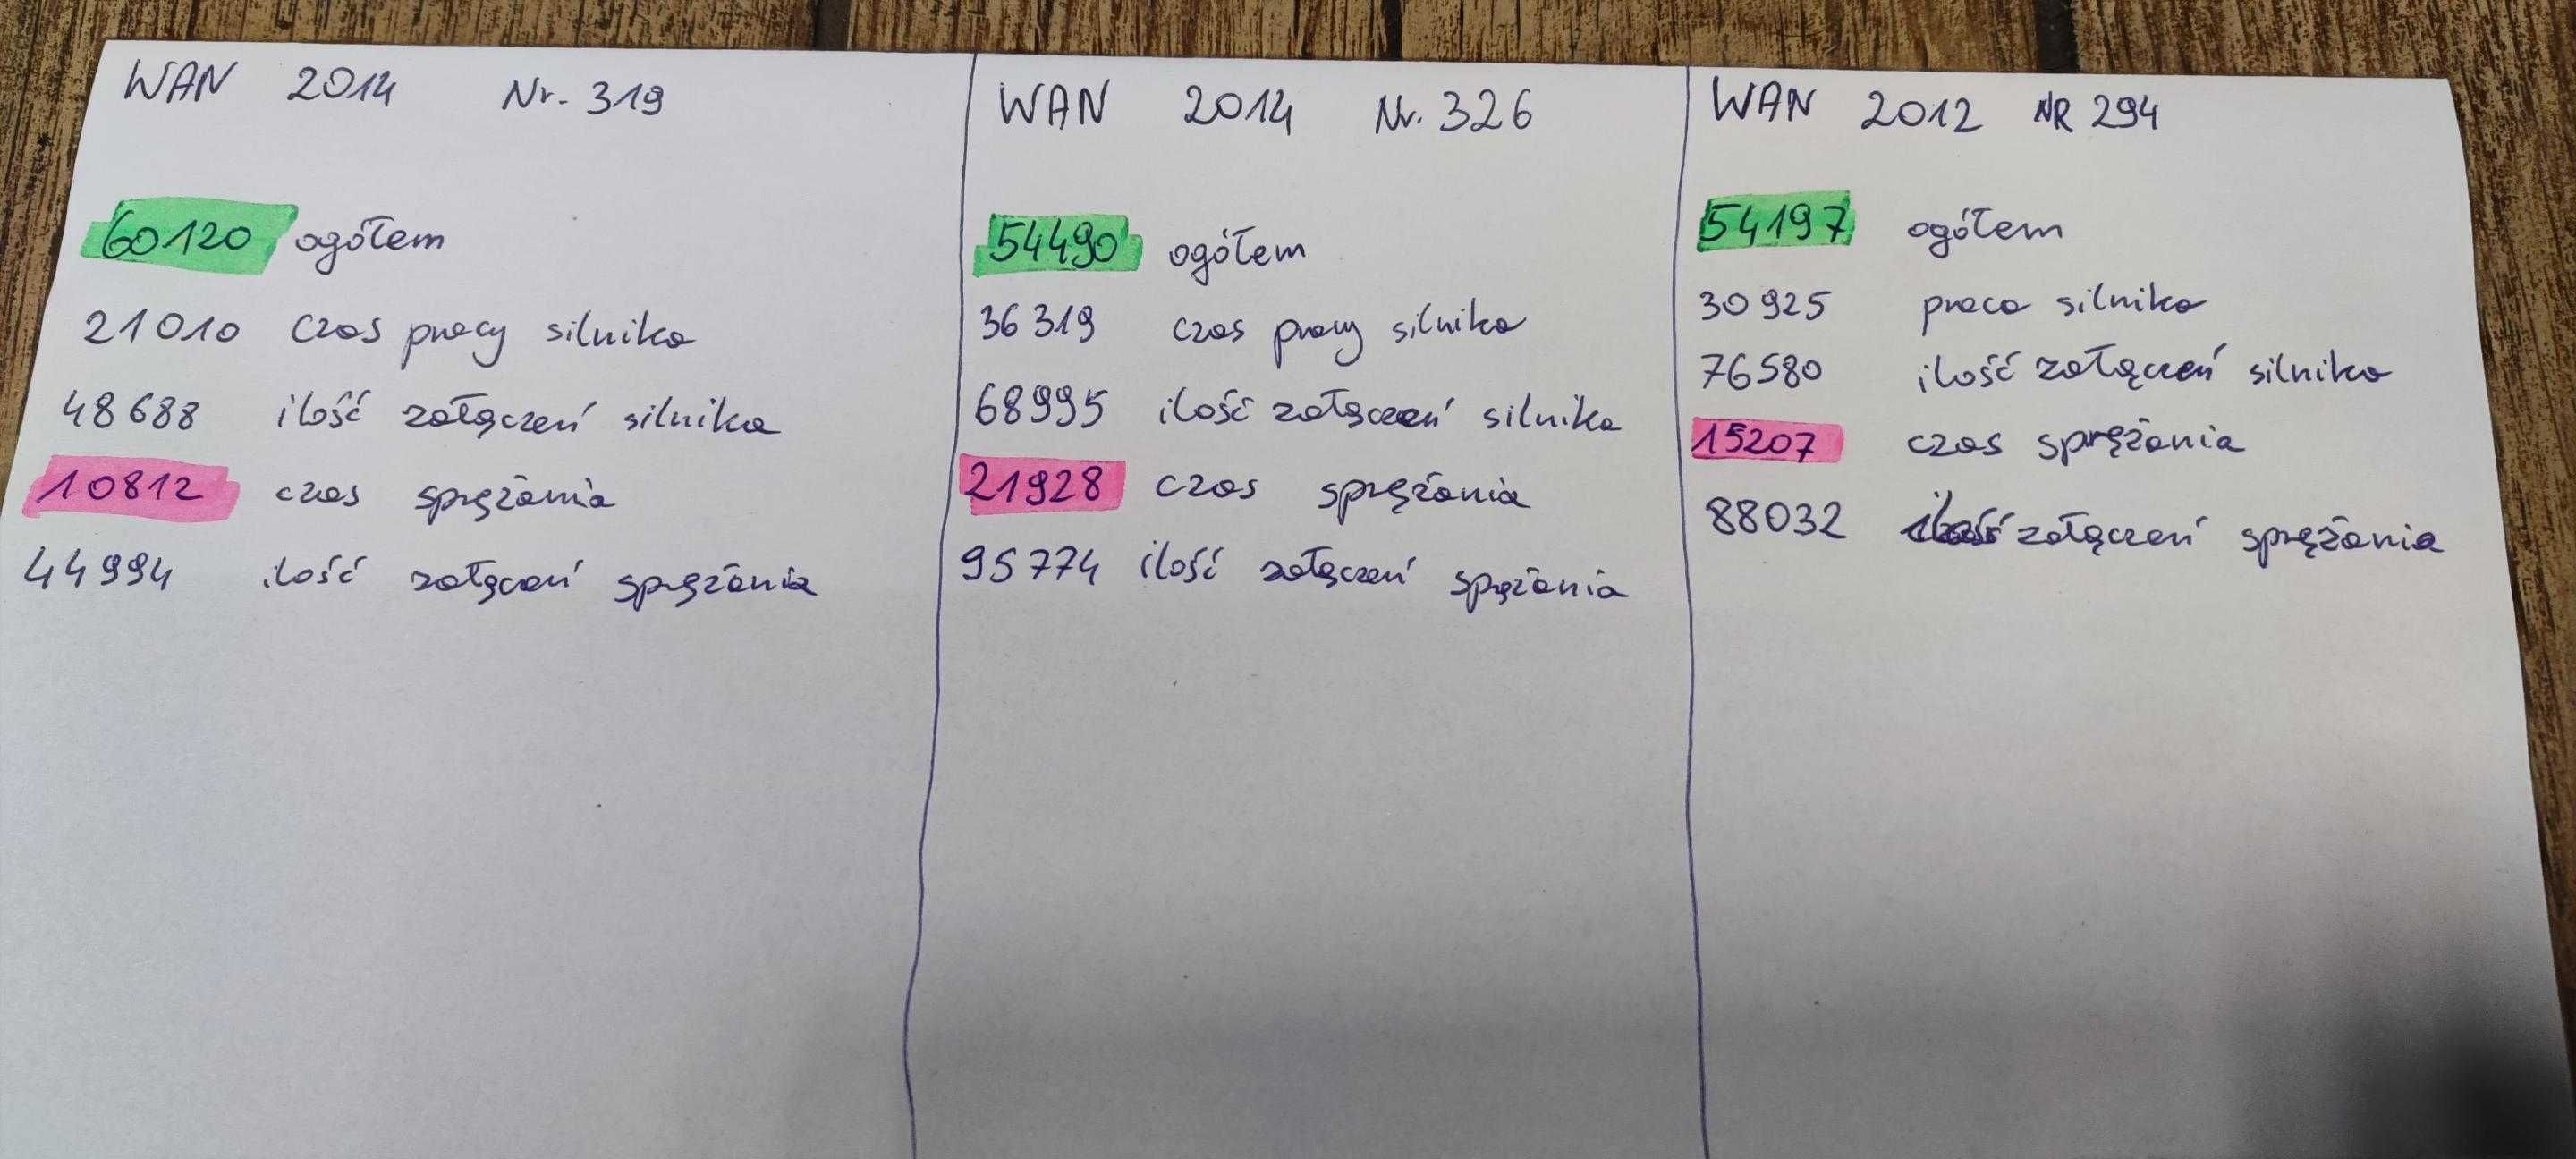 WAN 2014 Nr. 319
60120 ogółem
21010 czas pracy silnika
48688 ilość załączeń silnika
10812 czas sprężania
44994 ilość załączeń sprężania
WAN 2014 Nr. 326
54490 ogółem
36319 czas pracy silnika
68995 ilość załączeń silnika
21928 czas sprężania
95774 ilość załączeń sprężania
WAN 2012 NR 294
54197 ogółem
30925 praca silnika
76580 ilość załączeń silnika
15207 czas sprężania
88032 ilość załączeń sprężania